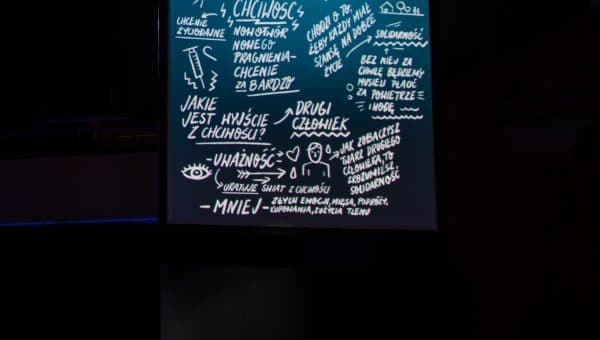 CHCENIE
ŻYCIODAJNE
CHCIWOŚĆ
NOWOTWÓR
NOWEGO
PRAGNIENIA-
CHCENIE
ZA BARDZO
CHODZI O TO,
ŻEBY KAŻDY MIAŁ
SZANSĘ NA DOBRE
ŻYCIE
SOLIDARNOŚĆ
BEZ NIEJ ZA
CHWILĘ BĘDZIEMY
MUSIELI PŁACIĆ
ZA POWIETRZE
I WODĘ
JAKIE
JEST WYJŚCIE
Z CHCIWOŚCI?
DRUGI
CZŁOWIEK
-UWAŻNOŚĆ
URATUJE ŚWIAT Z CHCIWOŚCI
JAK ZOBACZYSZ
TWARZ DRUGIEGO
CZŁOWIEKA, TO
ZROZUMIESZ
SOLIDARNOŚĆ
-MNIEJ- ZŁYCH EMOCJI, MIĘSA, PODRÓŻY,
KUPOWANIA, ZUŻYCIA TLENU